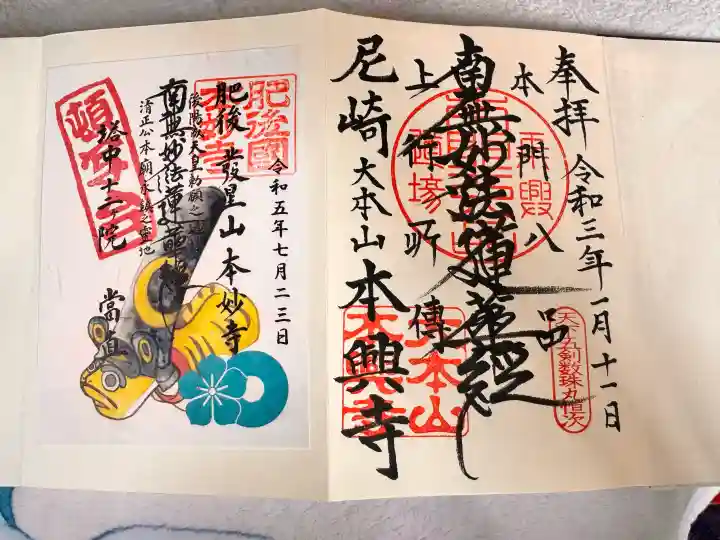 奉拝 令和三年一月十一日
本門八品
南無妙法蓮華経
上行所傳
尼崎 大本山 本興寺
大本山
本興寺
天下五剣数珠丸恒次
令和五年七月二三日
肥後國
本妙寺
肥後 發星山 本妙寺
後陽成天皇勅願之道場
南無妙法蓮華経
清正公本廟永鎮之霊地
頓写会
塔中十二ヶ院